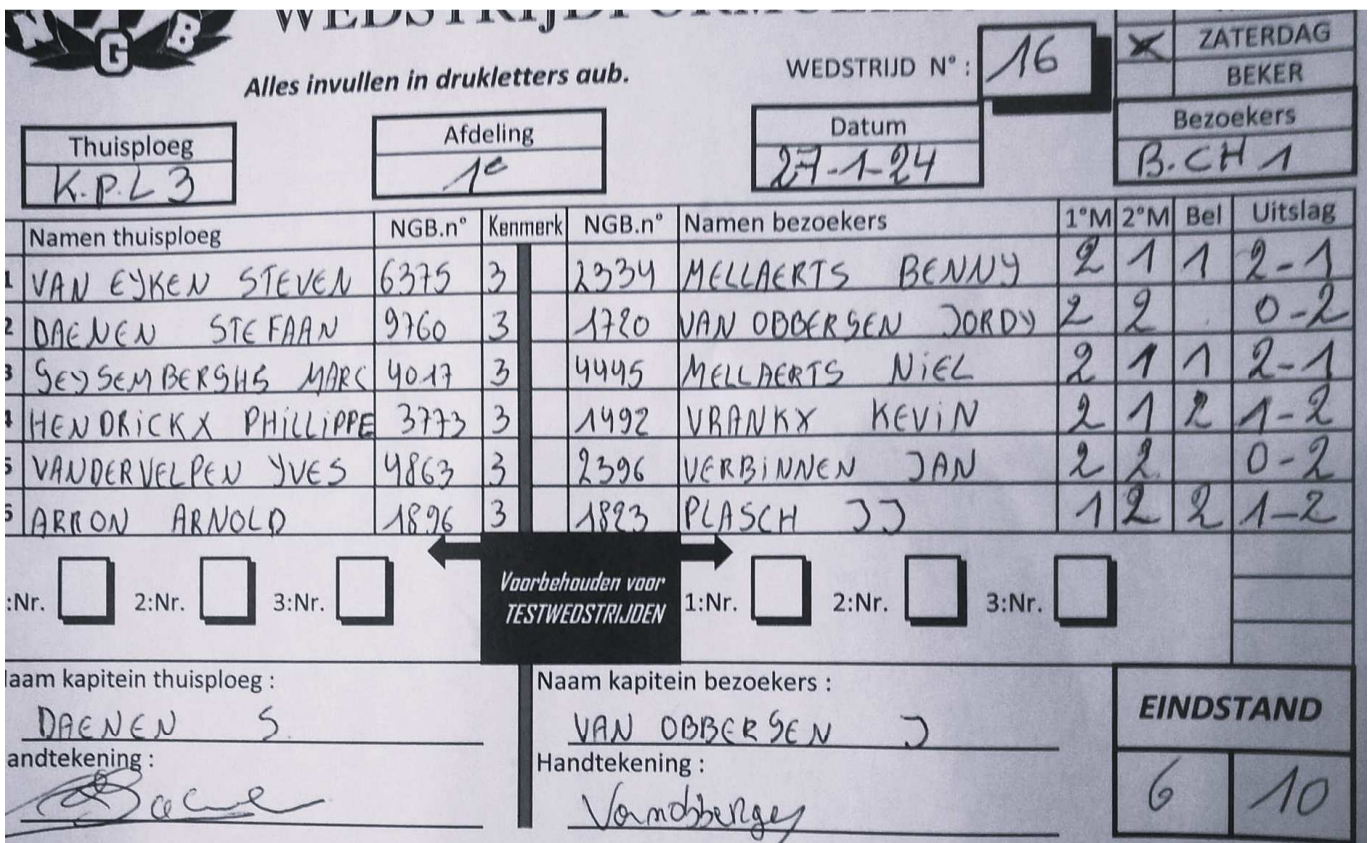 N G B WEDSTRIJDFORMULIER
Alles invullen in drukletters aub.
WEDSTRIJD N° : 16
X ZATERDAG
BEKER
Thuisploeg
K.P.L 3
Afdeling
1e
Datum
27-1-24
Bezoekers
B.CH 1
Namen thuisploeg NGB.n° Kenmerk NGB.n° Namen bezoekers 1°M 2°M Bel Uitslag
1 VAN EYKEN STEVEN 6375 3 2334 MELLAERTS BENNY 2 1 1 2-1
2 DAENEN STEFAAN 9760 3 1720 VAN OBBERGEN JORDY 2 2 0-2
3 GEYSEMBERGHS MARC 4017 3 4445 MELLAERTS NIEL 2 1 1 2-1
4 HENDRICKX PHILLIPPE 3773 3 1492 VRANKX KEVIN 2 1 2 1-2
5 VANDERVELPEN YVES 4863 3 2396 VERBINNEN JAN 2 2 0-2
6 ARRON ARNOLD 1896 3 1823 PLASCH JJ 1 2 2 1-2
:Nr. 2:Nr. 3:Nr. Voorbehouden voor TESTWEDSTRIJDEN 1:Nr. 2:Nr. 3:Nr.
Naam kapitein thuisploeg :
DAENEN S.
Handtekening :
Naam kapitein bezoekers :
VAN OBBERGEN J
Handtekening :
Vanobbergen
EINDSTAND
6 10